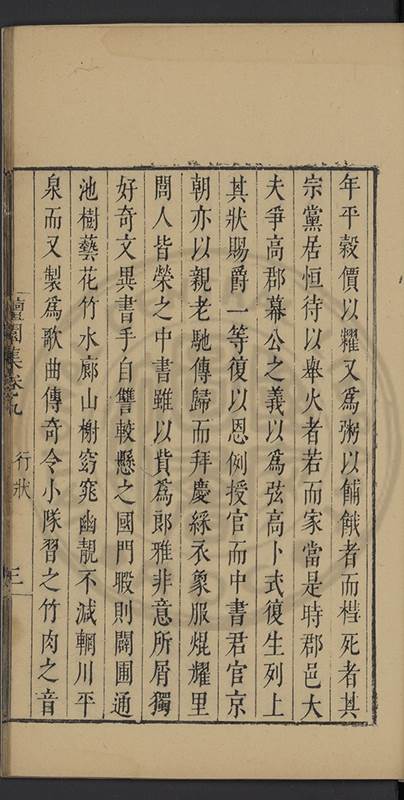 年平穀價以糶又爲粥以餔餓者而槥死者其
宗黨居恒待以舉火者若而家當是時郡邑大
夫爭高郡幕公之義以爲弦高卜式復生列上
其狀賜爵一等復以恩例授官而中書君官京
朝亦以親老馳傳歸而拜慶綵衣象服焜耀里
閭人皆榮之中書雖以貲爲郎雅非意所屑獨
好奇文異書手自讐較懸之國門暇則闢圃通
池樹藝花竹水廊山榭窈窕幽靚不減輞川平
泉而又製爲歌曲傳奇令小隊習之竹肉之音
集卷九
行狀
三